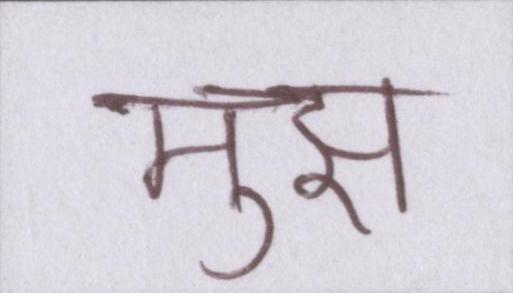 मुझ